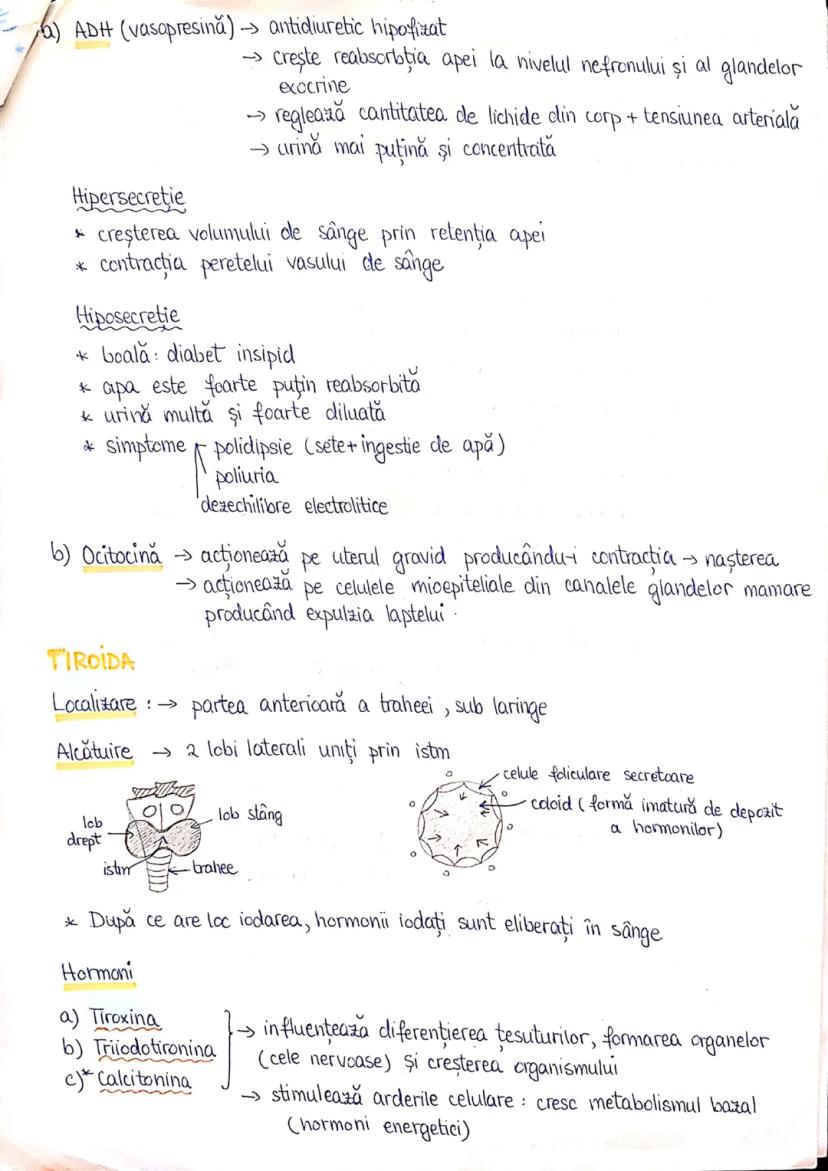 a) ADH (vasopresină) → antidiuretic hipofizat
→ crește reabsorbția apei la nivelul nefronului și al glandelor
exocrine
→ reglează cantitatea de lichide din corp + tensiunea arterială
→ urină mai puțină și concentrată
Hipersecreție
* creșterea volumului de sânge prin retenția apei
* contracția peretelui vasului de sânge
Hiposecreție
* boală: diabet insipid
* apa este foarte puțin reabsorbită
* urină multă și foarte diluată
* simptome polidipsie (sete+ingestie de apă)
poliuria
dezechilibre electrolitice
b) Ocitocină → acționează pe uterul gravid producându-i contracția → nașterea
→ acționează pe celulele mioepiteliale din canalele glandelor mamare
producând expulzia laptelui.
TIROIDA
Localizare : → partea anterioară a traheei, sub laringe
Alcătuire → 2 lobi laterali uniți prin istm
celule foliculare secretoare
coloid (formă imatură de depozit
a hormonilor)
lob stâng
lob
drept
istm
trahee
* După ce are loc iodarea, hormonii iodați sunt eliberați în sânge
Hormoni
a) Tiroxina
b) Triiodotironina
c)* Calcitonina
→ influențează diferențierea țesuturilor, formarea organelor
(cele nervoase) și creșterea organismului
→ stimulează arderile celulare : cresc metabolismul bazal
(hormoni energetici)